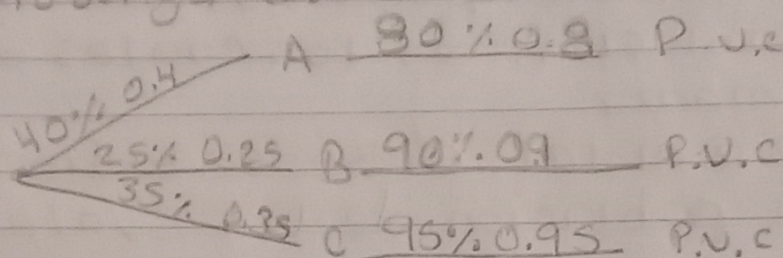 40% 0.4 A 80% 0.8 P.V.C
25% 0.25 B 90% 0.9 P.V.C
35% 0.35 C 95% 0.95 P.V.C